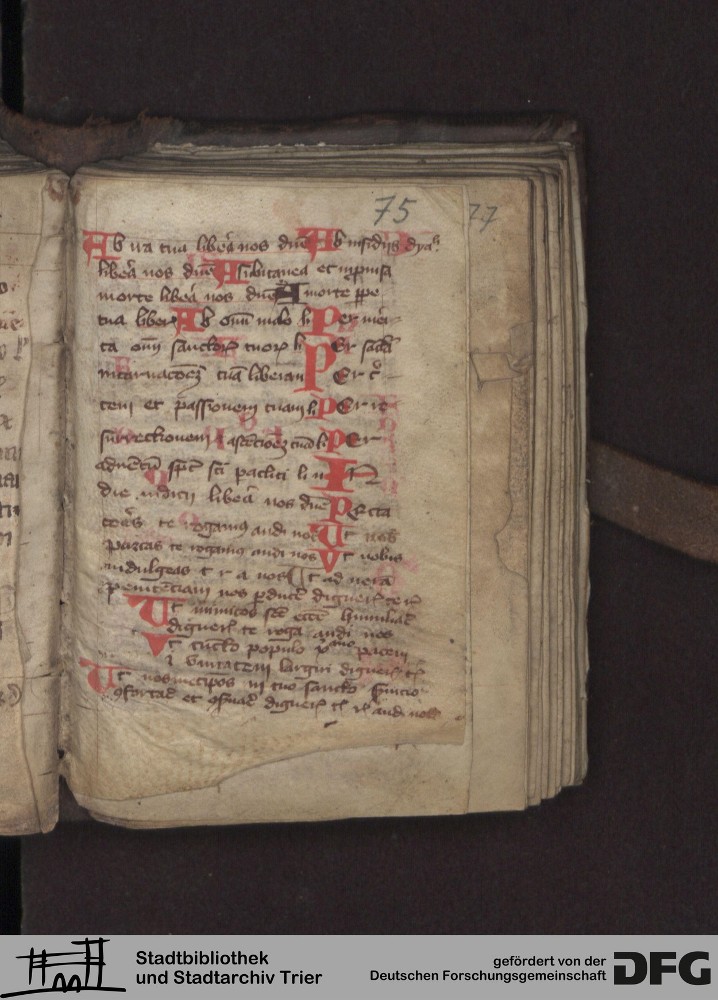 75
77
Ab ira tua libera nos dne Ab insidiis dya
libera nos dne A subitanea et inprouisa
morte libera nos dne A morte ppe
tua liber Ab omi malo li Per meri
ta omi sanctor tuor li Per sacra
incarnacoez tua liberan Per
ceni et passionem tuam li Per re
surrectionem ascecioez tua li Per
aduentu spc sci pacliti li n In
die iudicii libera nos dne Pecca
tores te rogamus audi nos Ut nob
parcas te rogamus audi nos Ut nobis
indulgeas t r a nos Ut ad uera
penitenciam nos pduce digneris te r
Ut inimicos sce eccle humiliare
digneris te roga audi nos
Ut cuncto populo pacem
largiri digneris
Ut nosmetipos in tuo sancto seruicio
9fortare et 9seruare digneris audi nos
Stadtbibliothek
und Stadtarchiv Trier
gefördert von der
Deutschen Forschungsgemeinschaft
DFG